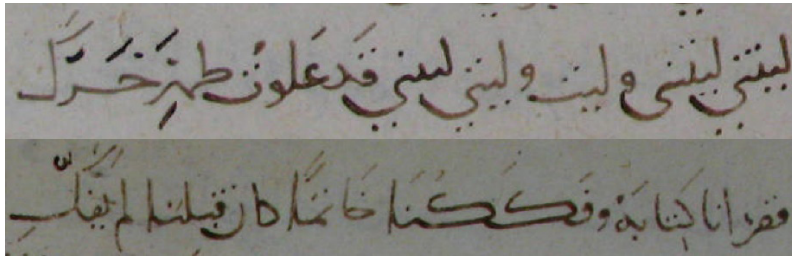 ليتني ليتني وليت وليتني ليتني قَد عَلوت ظهرَ حَرّك
فقرانا كتابَهُ وفَكَكنَا خَاتمًا كان قبلنا لم يُفَكِّ